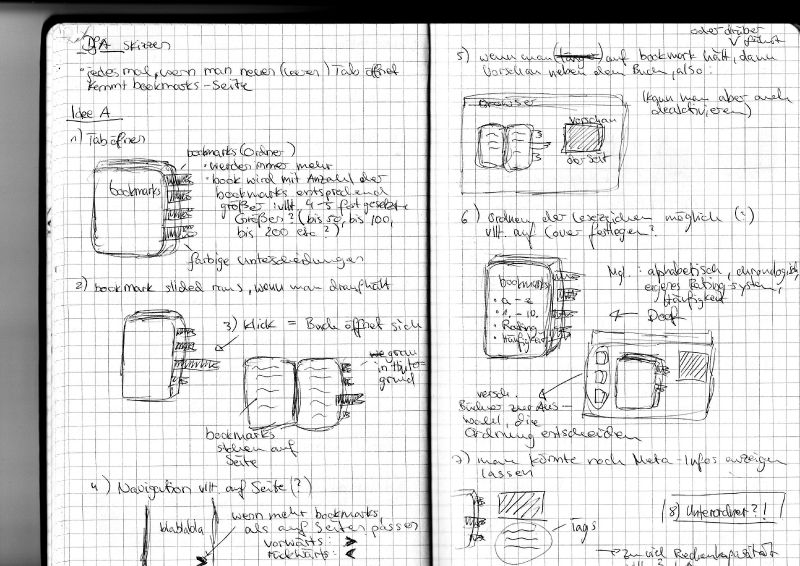 DfA skizzen
• jedes mal, wenn man neuen (leeren) Tab öffnet
kommt bookmarks-Seite
Idee A
1) Tab öffnen
bookmarks (Ordner)
• werden immer mehr
• book wird mit Anzahl der
bookmarks entsprechend
größer: vllt. 4-5 festgesetzte
Größen? (bis 50, bis 100,
bis 200 etc?)
bookmarks
farbige Unterscheidungen
2) bookmark slided raus, wenn man draufhält
3) Klick = Buch öffnet sich
grau
in Hinter-
grund
bookmarks
stehen auf
Seite
4) Navigation vllt. auf Seite (?)
blablabla
wenn mehr bookmarks,
als auf Seiten passen
vorwärts: >
rückwärts: <
oder drüber
fährt
5) wenn man (länger) auf bookmark hält, dann
Vorschau neben dem Buch, also:
Browser
Vorschau
der Seit
(kann man aber auch
deaktivieren)
6) Ordnen der Lesezeichen möglich (?)
vllt. auf Cover festlegen?
bookmarks
• a - z
• 1. - 10.
• Rating
• Häufigkeit
Mgl.: alphabetisch, chronologisch,
eigenes Rating-System,
Häufigkeit
Doof
versch.
Bücher zur Aus-
wahl, die
Ordnung entscheiden
7) man könnte noch Meta-Infos anzeigen
lassen
Tags
8) Unterordner?!
→ zu viel Rechenkapazität